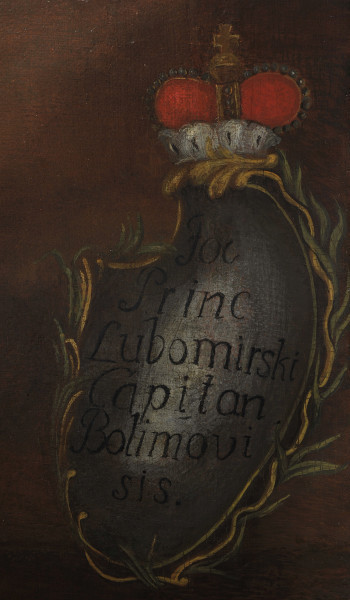 Joc
Princ
Lubomirski
Capitan.
Bolimovi
sis.